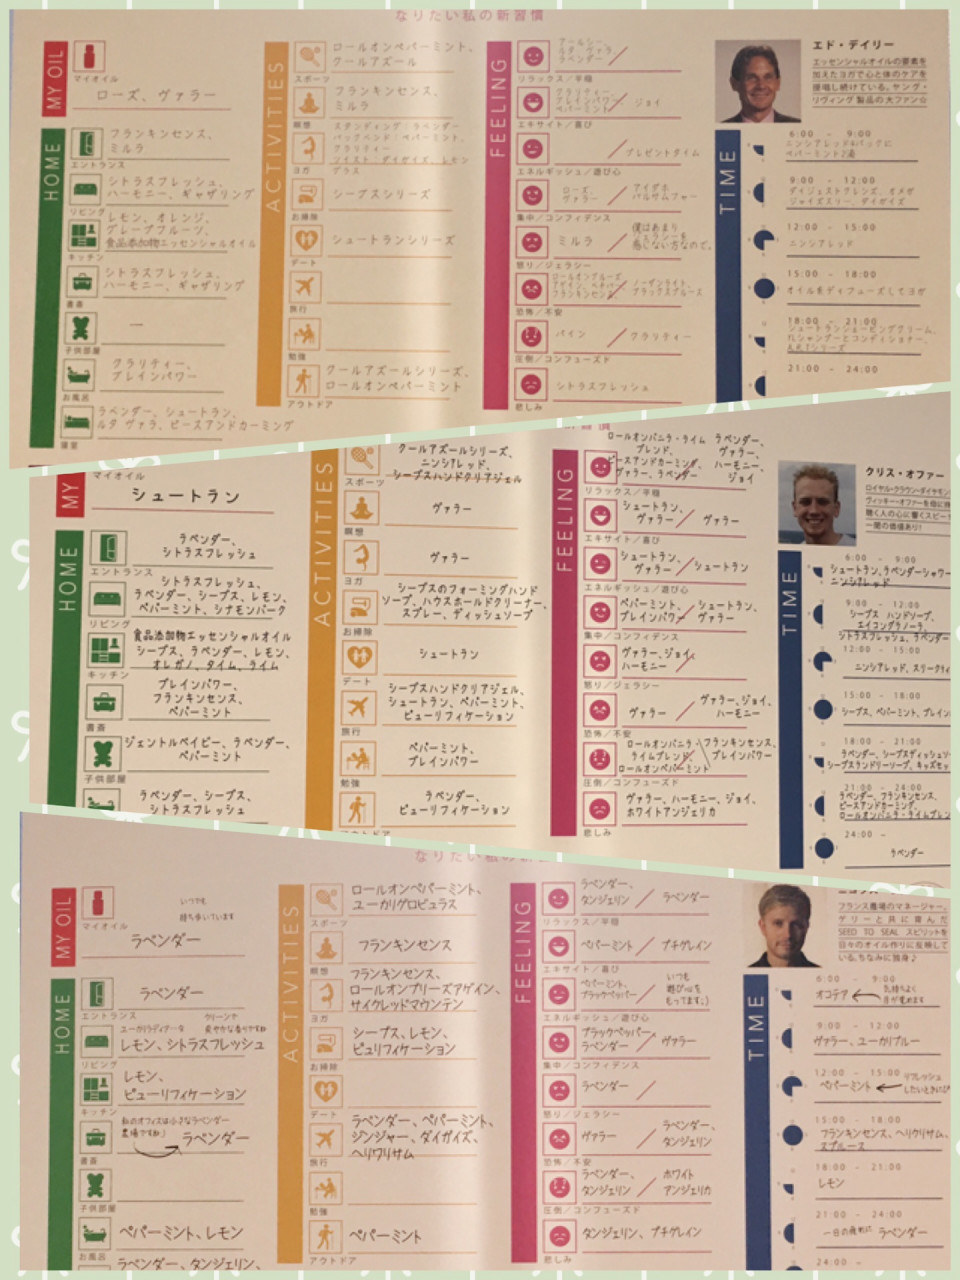 なりたい私の新習慣
MY OIL
マイオイル
ローズ、ヴァラー
HOME
フランキンセンス、
ミルラ
エントランス
シトラスフレッシュ、
ハーモニー、ギャザリング
リビング
レモン、オレンジ、
グレープフルーツ、
食品添加物エッセンシャルオイル
キッチン
シトラスフレッシュ、
ハーモニー、ギャザリング
書斎
子供部屋
クラリティー、
ブレインパワー
お風呂
ラベンダー、シュートラン、
ルタ ヴァラ、ピースアンドカーミング
寝室
ACTIVITIES
ロールオンペパーミント、
クールアズール
スポーツ
フランキンセンス、
ミルラ
瞑想
スタンディング：ラベンダー
バックベンド：ペパーミント、
クラリティー
ツイスト：ダイガイズ、レモン
グラス
ヨガ
シーブスシリーズ
お掃除
シュートランシリーズ
デート
旅行
勉強
クールアズールシリーズ、
ロールオンペパーミント
アウトドア
FEELING
アールシー、
ルタ ヴァラ、
ラベンダー
リラックス／平穏
クラリティー、
ブレインパワー、
ペパーミント／ジョイ
エキサイト／喜び
／プレゼントタイム
エネルギッシュ／遊び心
ローズ、
ヴァラー／アイダホ
バルサムファー
集中／コンフィデンス
ミルラ／僕はあまり
ジェラシーを
感じない方なので。
怒り／ジェラシー
フランキンセンス／ノーザンライト、
ブラックスプルース
恐怖／不安
パイン／クラリティー
圧倒／コンフューズド
シトラスフレッシュ
悲しみ
エド・デイリー
エッセンシャルオイルの要素を
加えたヨガで心と体のケアを
提唱し続けている。ヤング・
リヴィング 製品の大ファン☆
TIME
6:00 - 9:00
ニンシアレッド4パックに
ペパーミント2滴
9:00 - 12:00
ダイジェストクレンズ、オメガ
ジョイズスリー、ダイガイズ
12:00 - 15:00
ニンシアレッド
15:00 - 18:00
オイルをディフューズしてヨガ
18:00 - 21:00
シュートランシェービングクリーム、
YLシャンプーとコンディショナー、
A.R.Tシリーズ
21:00 - 24:00
MY
マイオイル
シュートラン
HOME
ラベンダー、
シトラスフレッシュ
エントランス
シトラスフレッシュ、
ラベンダー、シーブス、レモン、
ペパーミント、シナモンバーク
リビング
食品添加物エッセンシャルオイル
シーブス、ラベンダー、レモン、
オレガノ、タイム、ライム
キッチン
ブレインパワー、
フランキンセンス、
ペパーミント
書斎
ジェントルベイビー、ラベンダー、
ペパーミント
子供部屋
ラベンダー、シーブス、
シトラスフレッシュ
ACTIVITIES
クールアズールシリーズ、
ニンシアレッド、
シーブスハンドクリアジェル
スポーツ
ヴァラー
瞑想
ヴァラー
ヨガ
シーブスのフォーミングハンド
ソープ、ハウスホールドクリーナー、
スプレー、ディッシュソープ
お掃除
シュートラン
デート
シーブスハンドクリアジェル、
シュートラン、ペパーミント、
ピューリフィケーション
旅行
ペパーミント、
ブレインパワー
勉強
ラベンダー、
ピューリフィケーション
アウトドア
FEELING
ロールオンバニラ・ライム
ブレンド、
ピースアンドカーミング、
ヴァラー、ラベンダー
ラベンダー、
ヴァラー、
ハーモニー、
ジョイ
リラックス／平穏
シュートラン、
ヴァラー／ヴァラー
エキサイト／喜び
シュートラン、
ヴァラー／シュートラン
エネルギッシュ／遊び心
ペパーミント、
ブレインパワー／シュートラン、
ヴァラー
集中／コンフィデンス
ヴァラー、ジョイ、
ハーモニー／
怒り／ジェラシー
ヴァラー／ヴァラー、ジョイ、
ハーモニー
恐怖／不安
ロールオンバニラ・
ライムブレンド、
ロールオンペパーミント
フランキンセンス、
ブレインパワー
圧倒／コンフューズド
ヴァラー、ハーモニー、ジョイ、
ホワイトアンジェリカ
悲しみ
クリス・オファー
ロイヤル・クラウン・ダイヤモン
ヴィッキー・オファーを母に持
聴く人の心に響くスピー
一聞の価値あり!
TIME
6:00 - 9:00
シュートラン、ラベンダーシャワー
ニンシアレッド
9:00 - 12:00
シーブス ハンドソープ、
エイコングラノーラ、
シトラスフレッシュ、ラベンダー
12:00 - 15:00
ニンシアレッド、スリークティ
15:00 - 18:00
シーブス、ペパーミント、ブレイン
18:00 - 21:00
ラベンダー、シーブスディッシュソ
シーブスランドリーソープ、キッズセッ
21:00 - 24:00
ラベンダー、フランキンセンス、
ピースアンドカーミング、
ロールオンバニラ・ライムブレン
24:00 -
ラベンダー
なりたい私の新
MY OIL
いつでも
持ち歩いています
マイオイル
ラベンダー
HOME
ラベンダー
エントランス
ユーカリラディアータ
クリーンや
爽やかな香りですね
レモン、シトラスフレッシュ
リビング
レモン、
ピューリフィケーション
キッチン
私のオフィスは小さなラベンダー
農場ですね♪
ラベンダー
書斎
子供部屋
ペパーミント、レモン
お風呂
ラベンダー、タンジェリン、
ACTIVITIES
ロールオンペパーミント、
ユーカリグロビュラス
スポーツ
フランキンセンス
瞑想
フランキンセンス、
ロールオンブリーズアゲイン、
サイクレッドマウンテン
ヨガ
シーブス、レモン、
ピュリフィケーション
お掃除
デート
ラベンダー、ペパーミント、
ジンジャー、ダイガイズ、
ヘリクリサム
旅行
勉強
ペパーミント
アウトドア
FEELING
ラベンダー、
タンジェリン／ラベンダー
リラックス／平穏
ペパーミント／プチグレイン
エキサイト／喜び
ペパーミント、
ブラックペッパー／いつも
遊び心を
もってます;)
エネルギッシュ／遊び心
ブラックペッパー、
ラベンダー／ヴァラー
集中／コンフィデンス
ラベンダー／
怒り／ジェラシー
ヴァラー／ラベンダー、
タンジェリン
恐怖／不安
ラベンダー、
タンジェリン／ホワイト
アンジェリカ
圧倒／コンフューズド
タンジェリン、プチグレイン
悲しみ
フランス農場のマネージャー。
ゲリーと共に育んだ
SEED TO SEAL スピリットを
日々のオイル作りに反映して
いる。ちなみに独身♪
TIME
6:00 - 9:00
オコテア ← 気持ちよく
目が覚めます
9:00 - 12:00
ヴァラー、ユーカリブルー
12:00 - 15:00
ペパーミント ← リフレッシュ
したいときに
15:00 - 18:00
フランキンセンス、ヘリクリサム、
スプルース
18:00 - 21:00
レモン
21:00 - 24:00
一日の疲れに ラベンダー
24:00 -